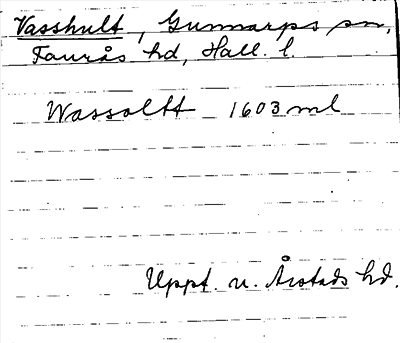 Vasshult, Gunnarps sn,
Faurås hd, Hall. l.
Wassoltt 1603 ml
Uppt. u. Årstads hd.